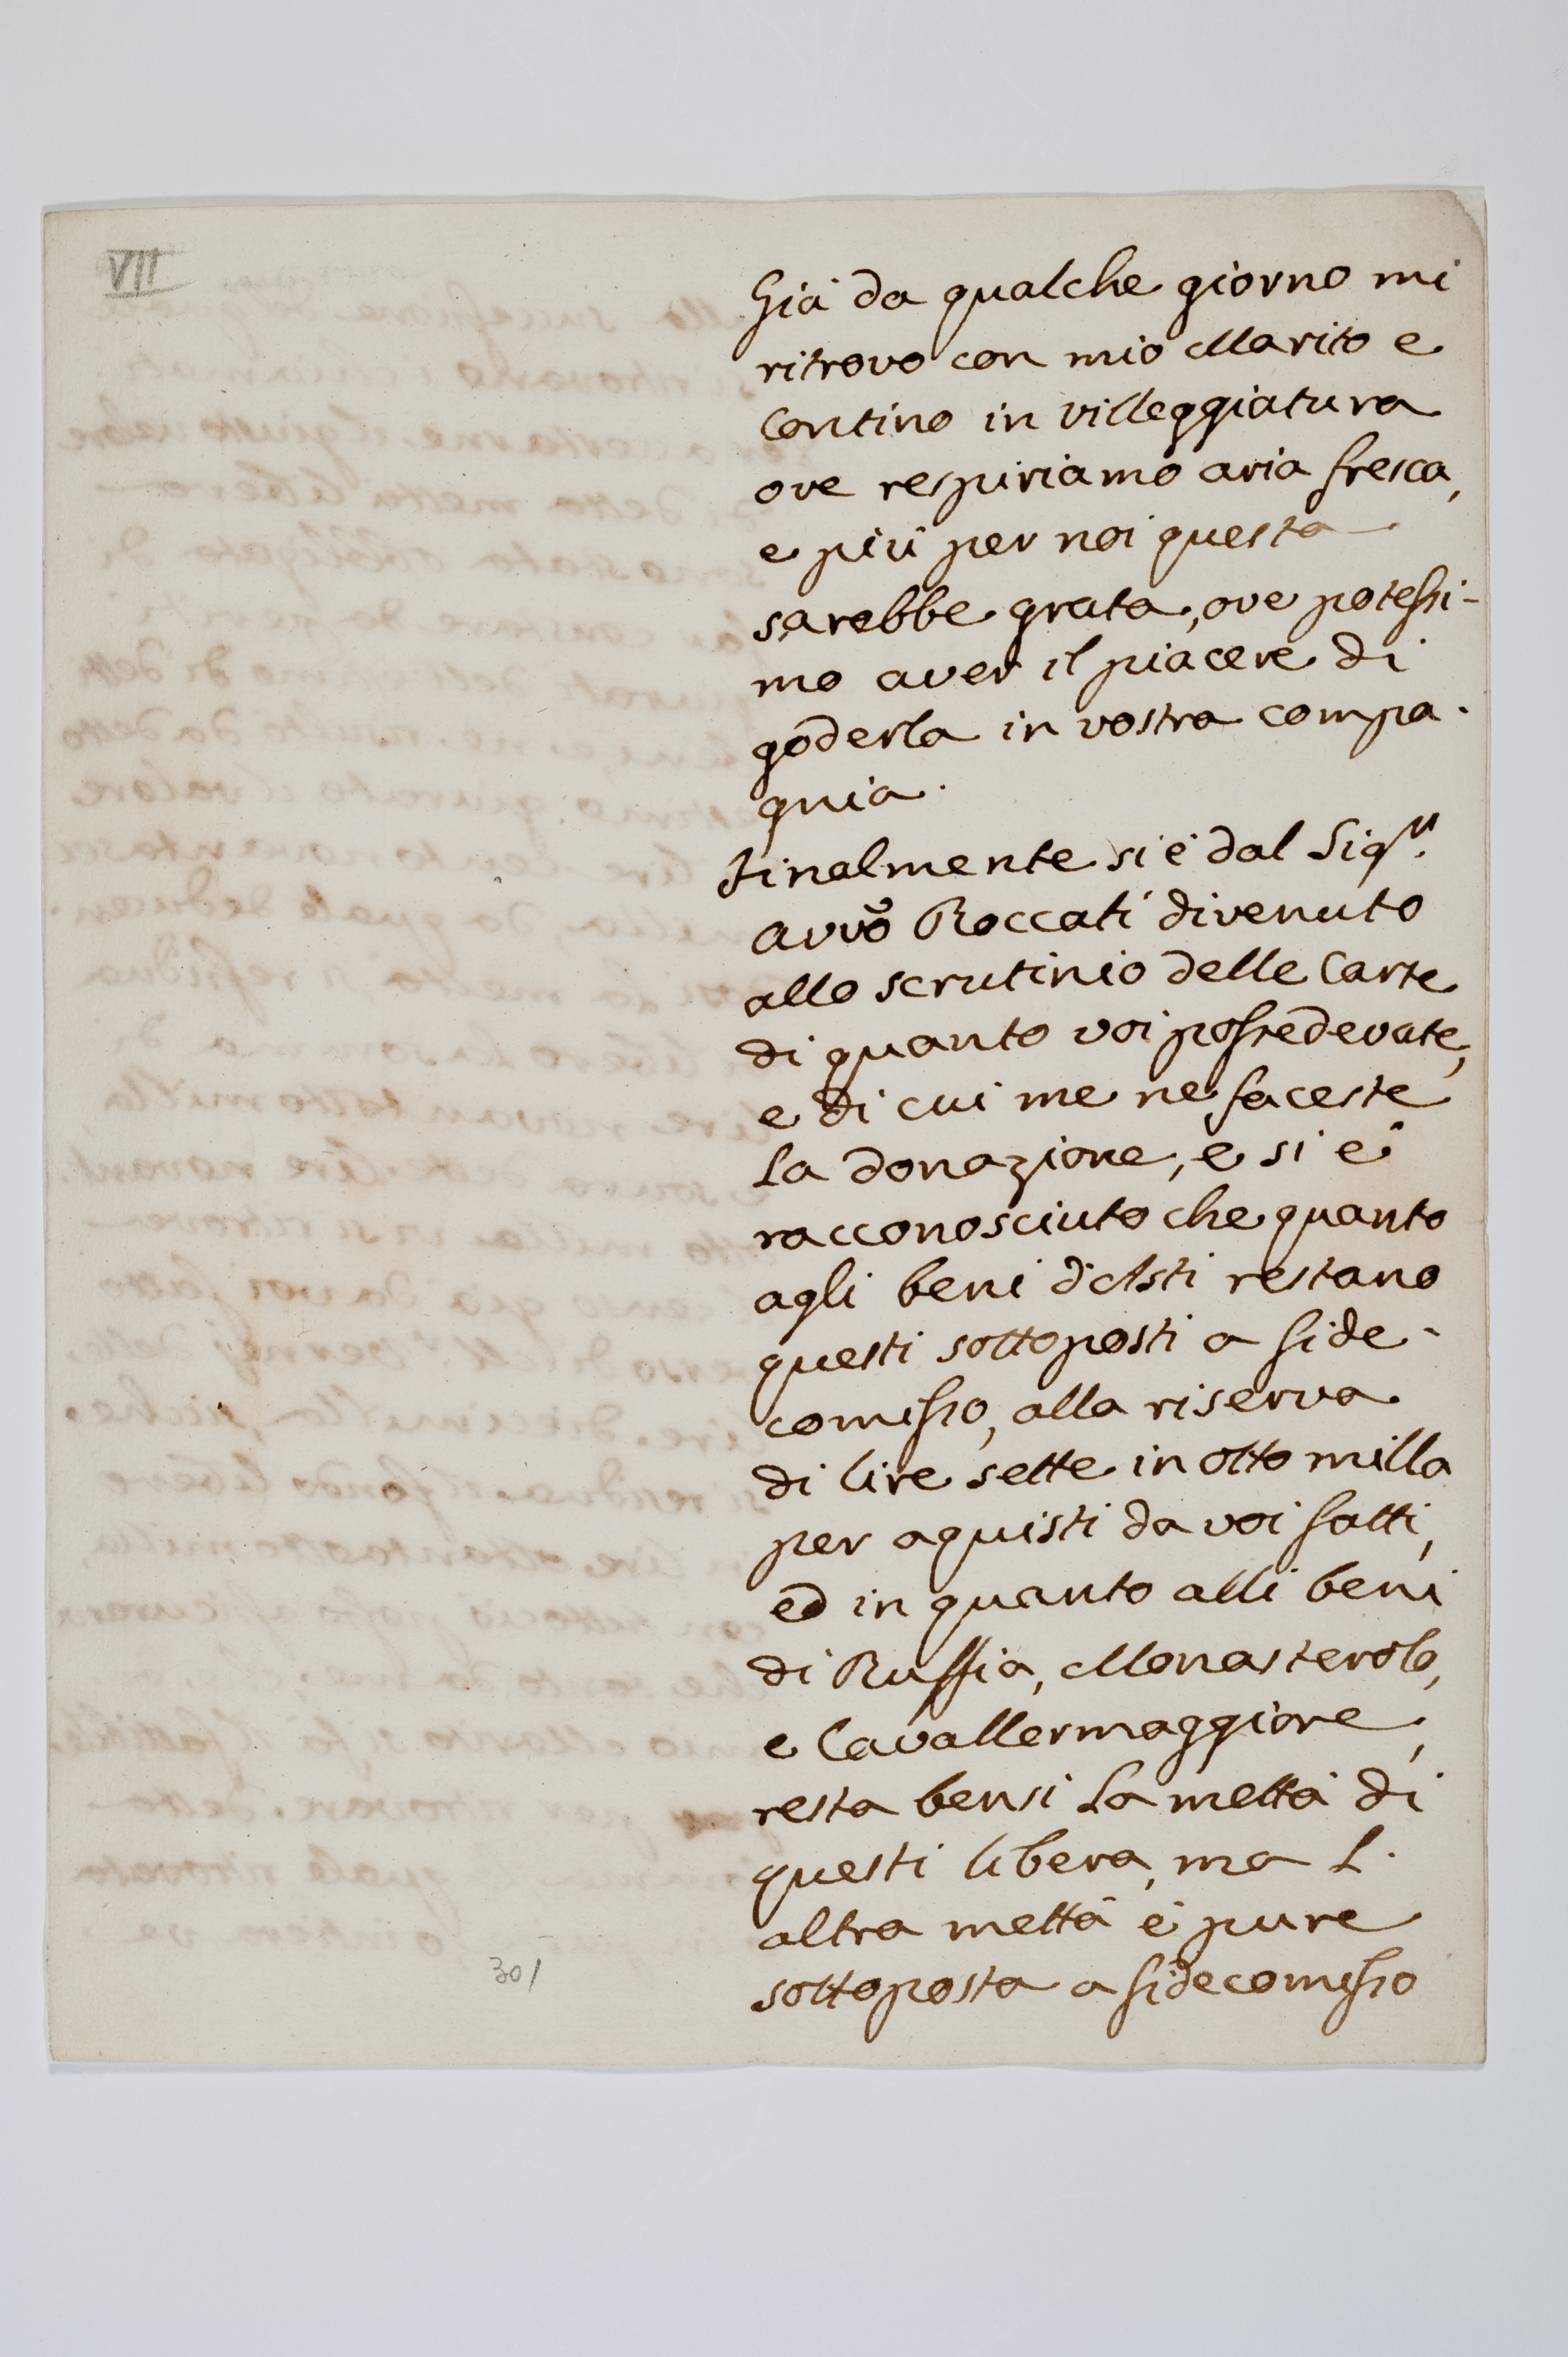 VII
Già da qualche giorno mi
ritrovo con mio Marito e
Contino in villeggiatura
ove respiriamo aria fresca,
e più per noi questa
sarebbe grata, ove potessi-
mo aver il piacere di
goderla in vostra compa-
gnia.
Finalmente si è dal Sig.r
Avvo Roccati divenuto
allo scrutinio delle Carte
di quanto voi possedevate,
e di cui me ne faceste
la donazione, e si è
racconosciuto che quanto
agli beni d'Asti restano
questi sottoposti a fide-
comisso, alla riserva
di lire sette in otto milla
per aquisti da voi fatti,
ed in quanto alli beni
di Ruffia, Monasterolo,
e Cavallermaggiore,
resta bensi la mettà di
questi libera, ma l'
altra mettà è pure
sottoposta a fidecomisso
301